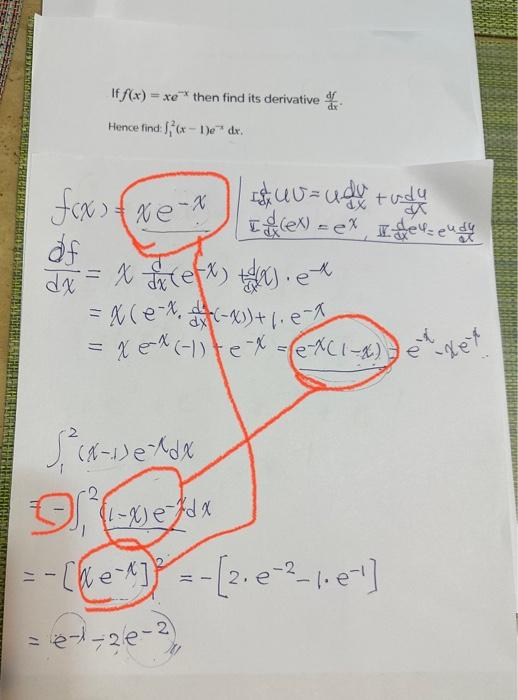 If f(x) = xe⁻ˣ then find its derivative df/dx.
Hence find: ∫₁²(x − 1)e⁻ˣ dx.
f(x) = xe⁻ˣ
I d/dx uv = u dv/dx + v du/dx
II d/dx(eˣ) = eˣ, III d/dx eᵘ = eᵘ du/dx
df/dx = x d/dx(e⁻ˣ) + d/dx(x) · e⁻ˣ
= x(e⁻ˣ · d/dx(−x)) + 1 · e⁻ˣ
= x e⁻ˣ(−1) + e⁻ˣ = e⁻ˣ(1−x) = e⁻ˣ − xe⁻ˣ
∫₁² (x−1)e⁻ˣdx
= −∫₁² (1−x)e⁻ˣdx
= −[xe⁻ˣ]₁² = −[2·e⁻² − 1·e⁻¹]
= e⁻¹ − 2e⁻²